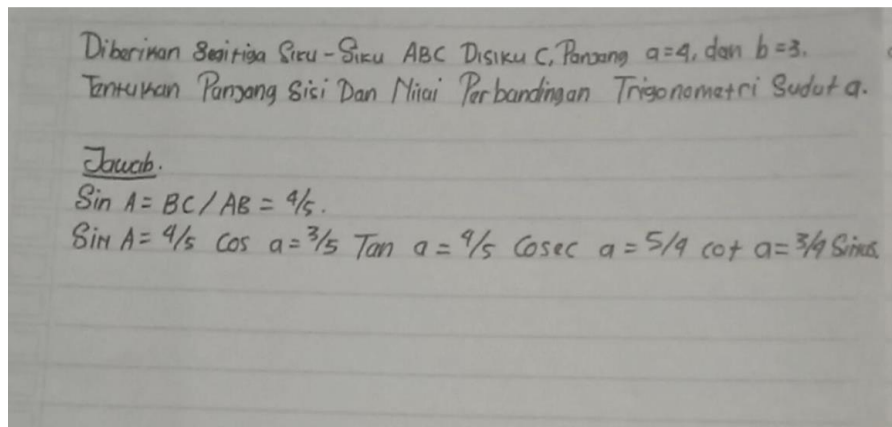 Diberikan Segitiga Siku-Siku ABC Disiku C, Panjang a=4, dan b=3.
Tentukan Panjang Sisi Dan Nilai Perbandingan Trigonometri Sudut a.
Jawab.
Sin A = BC/AB = 4/5.
Sin A = 4/5 Cos a = 3/5 Tan a = 4/5 Cosec a = 5/4 cot a = 3/4 Sinus.